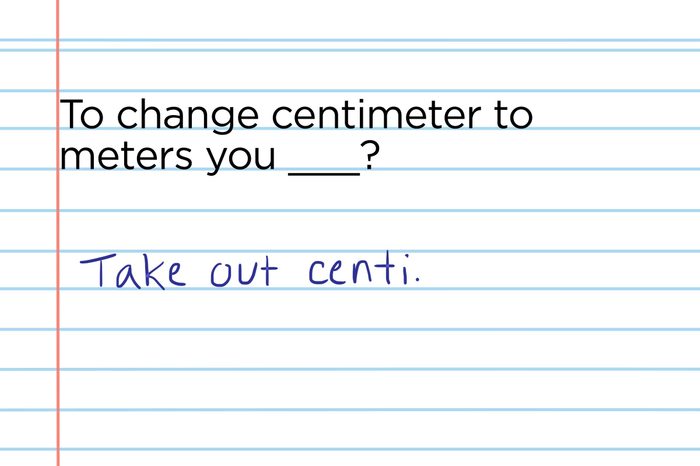 To change centimeter to
meters you ___?
Take out centi.